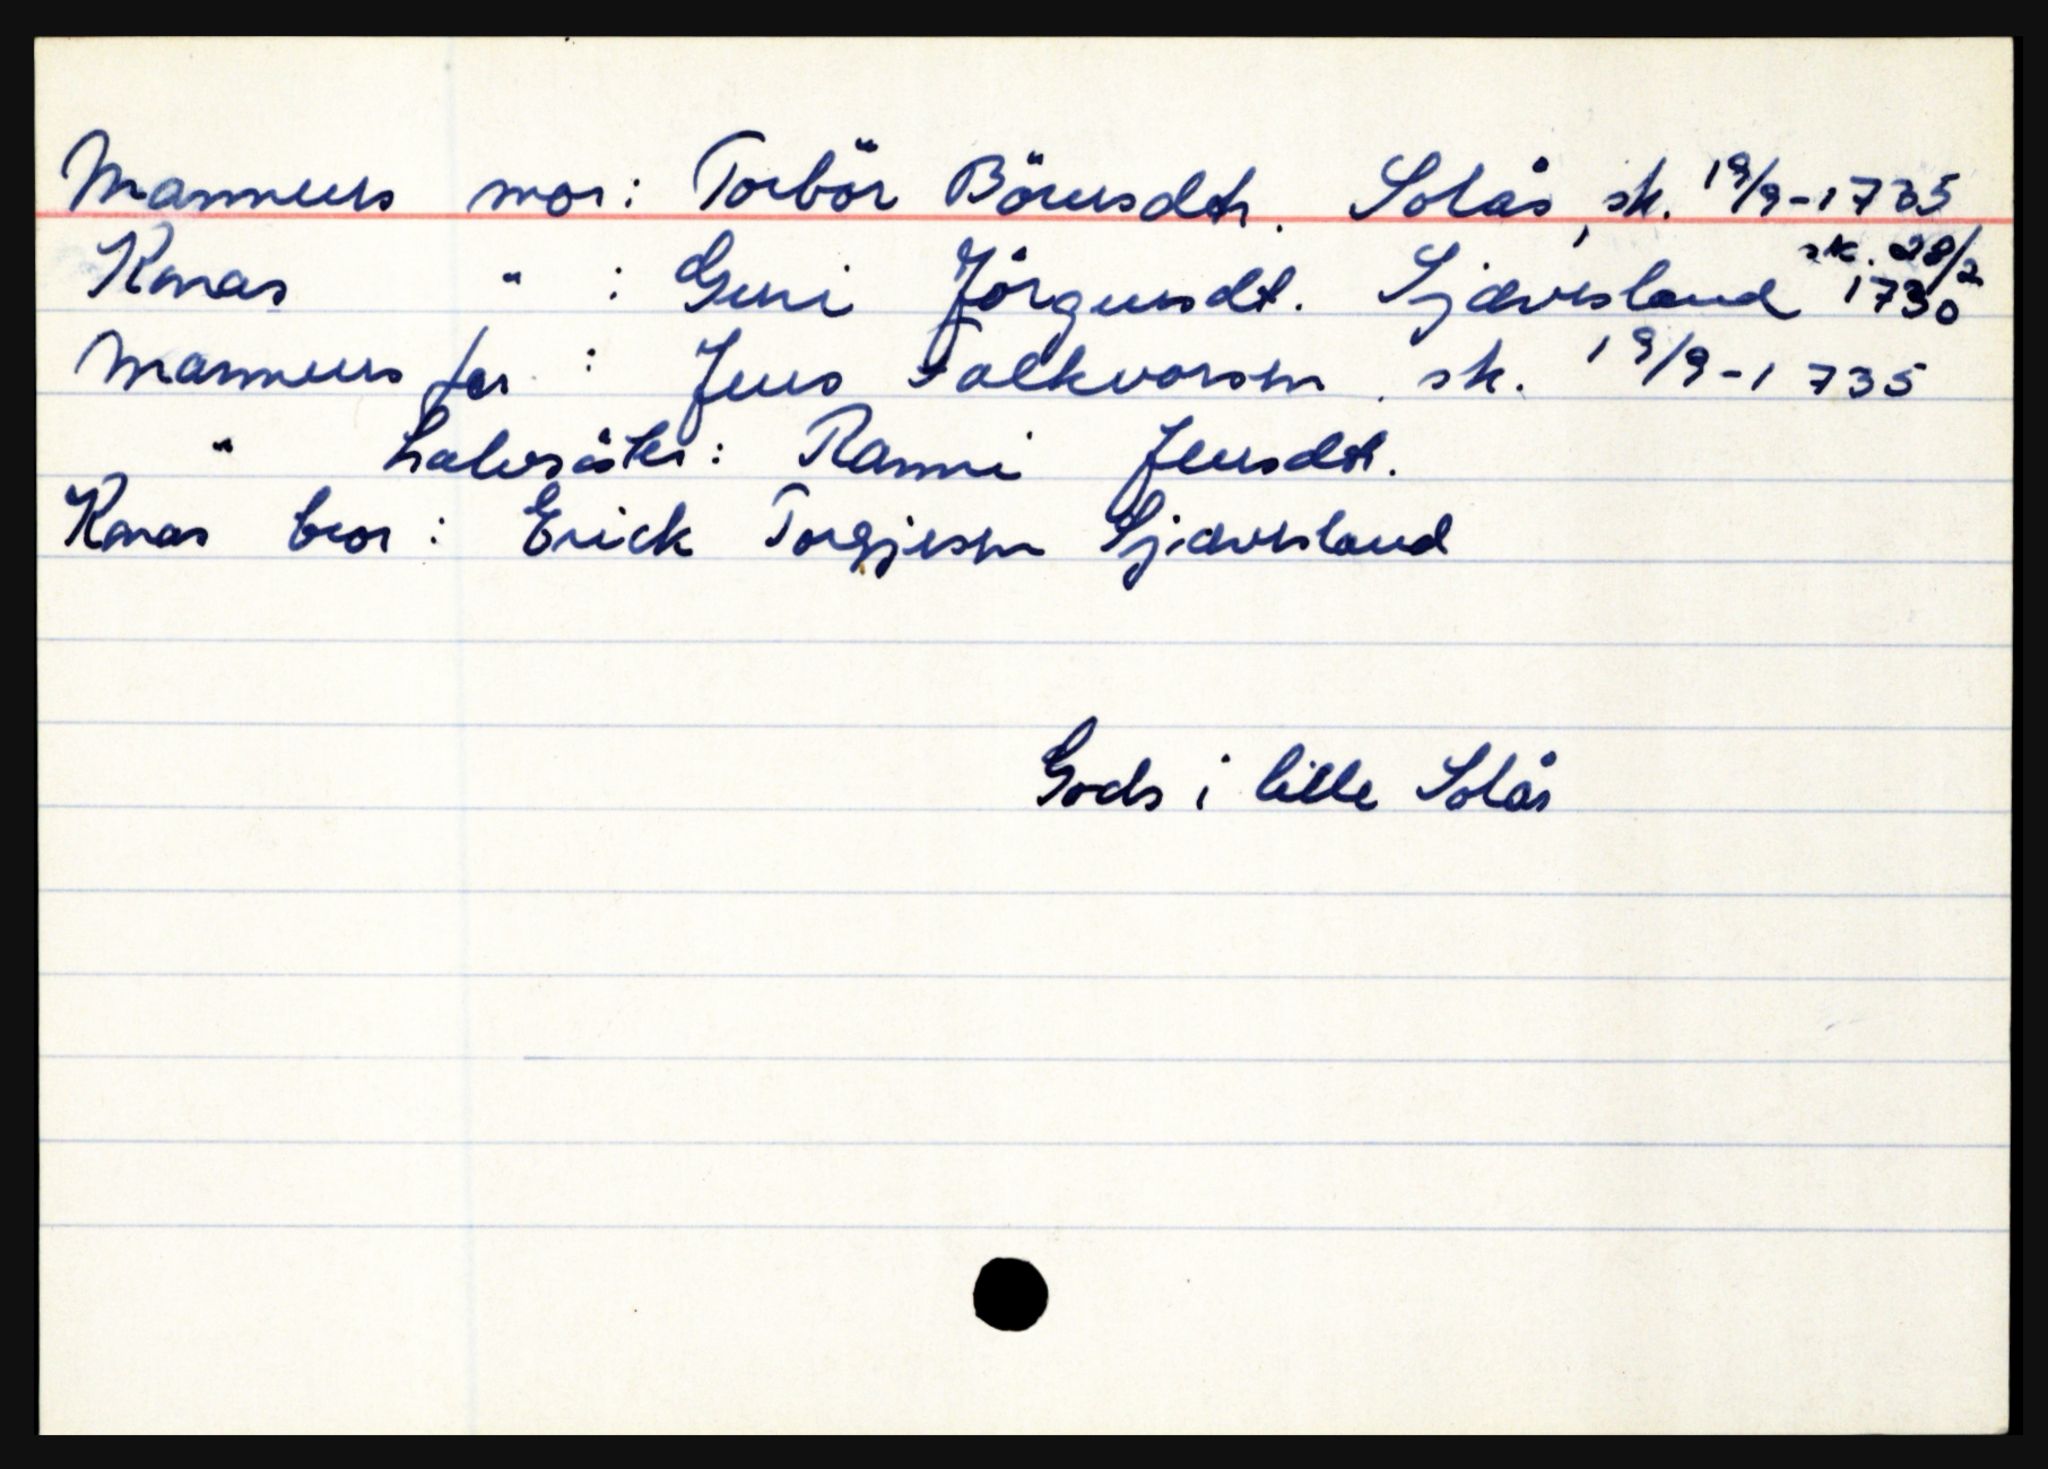 Mannens mor: Torbör Börresdtr. Solås, sk. 19/9-1735
Konas " : Guri Jörgensdt. Sjævesland sk. 28/2 1730
Mannens far : Jens Falkvorsen, sk. 19/9-1735
" halvsöster: Ranni Jensdtr.
Konas bror : Erick Torgjesen Sjævesland
Gods i lille Solås